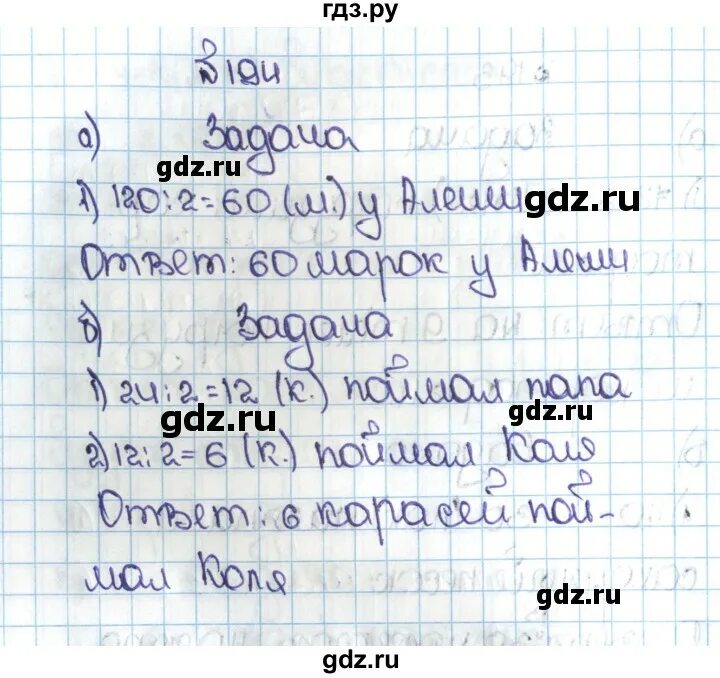 гдз.ру
№194
а) Задача
gdz.ru
1) 120:2=60 (м.) у Алеши
gdz.ru
Ответ: 60 марок у Алеши
б) Задача
1) 24:2=12 (к.) поймал папа
gdz.ru
gdz.ru
2) 12:2=6 (к.) поймал Коля
Ответ: 6 карасей пой-
мал Коля
gdz.ru
gdz.ru